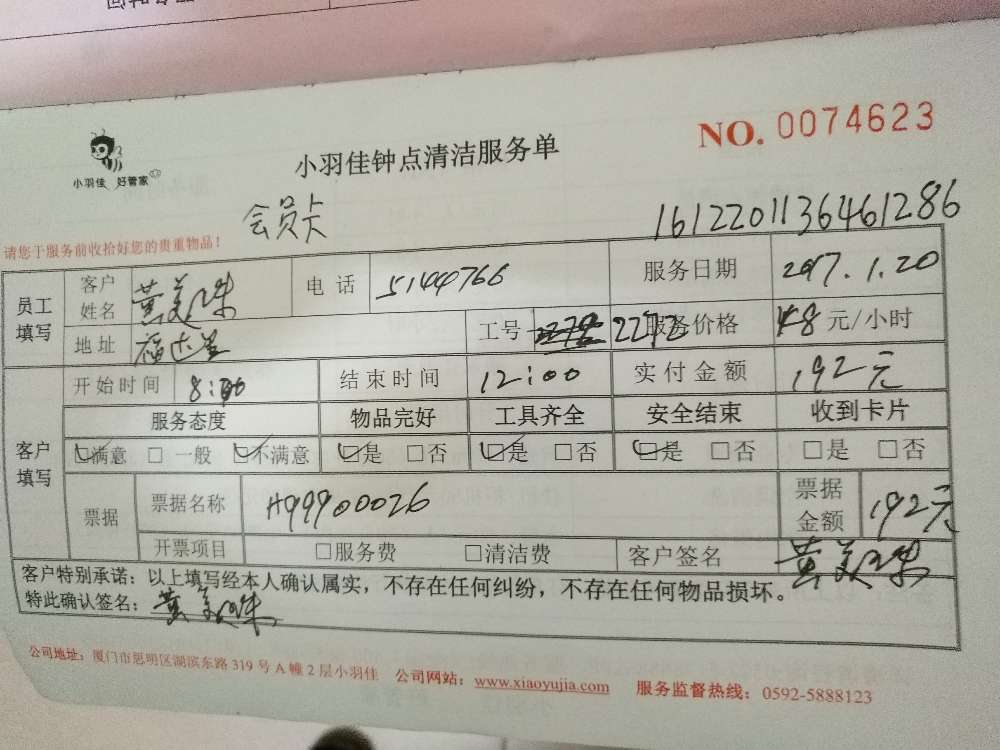 NO. 0074623
小羽佳 好管家
小羽佳钟点清洁服务单
会员卡
1612201136461286
请您于服务前收拾好您的贵重物品！
员工填写
客户姓名 黄美珠 电话 5144766 服务日期 2017.1.20
地址 工号 2272 服务价格 48 元/小时
客户填写
开始时间 8:00 结束时间 12:00 实付金额 192元
服务态度 物品完好 工具齐全 安全结束 收到卡片
☑满意 □ 一般 ☑不满意 ☑是 □否 ☑是 □否 ☑是 □否 □是 □否
票据 票据名称 H99900026 票据金额 192元
开票项目 □服务费 □清洁费 客户签名 黄美珠
客户特别承诺：以上填写经本人确认属实，不存在任何纠纷，不存在任何物品损坏。
特此确认签名：黄美珠
公司地址：厦门市思明区湖滨东路 319 号 A 幢 2 层小羽佳 公司网站：www.xiaoyujia.com 服务监督热线：0592-5888123